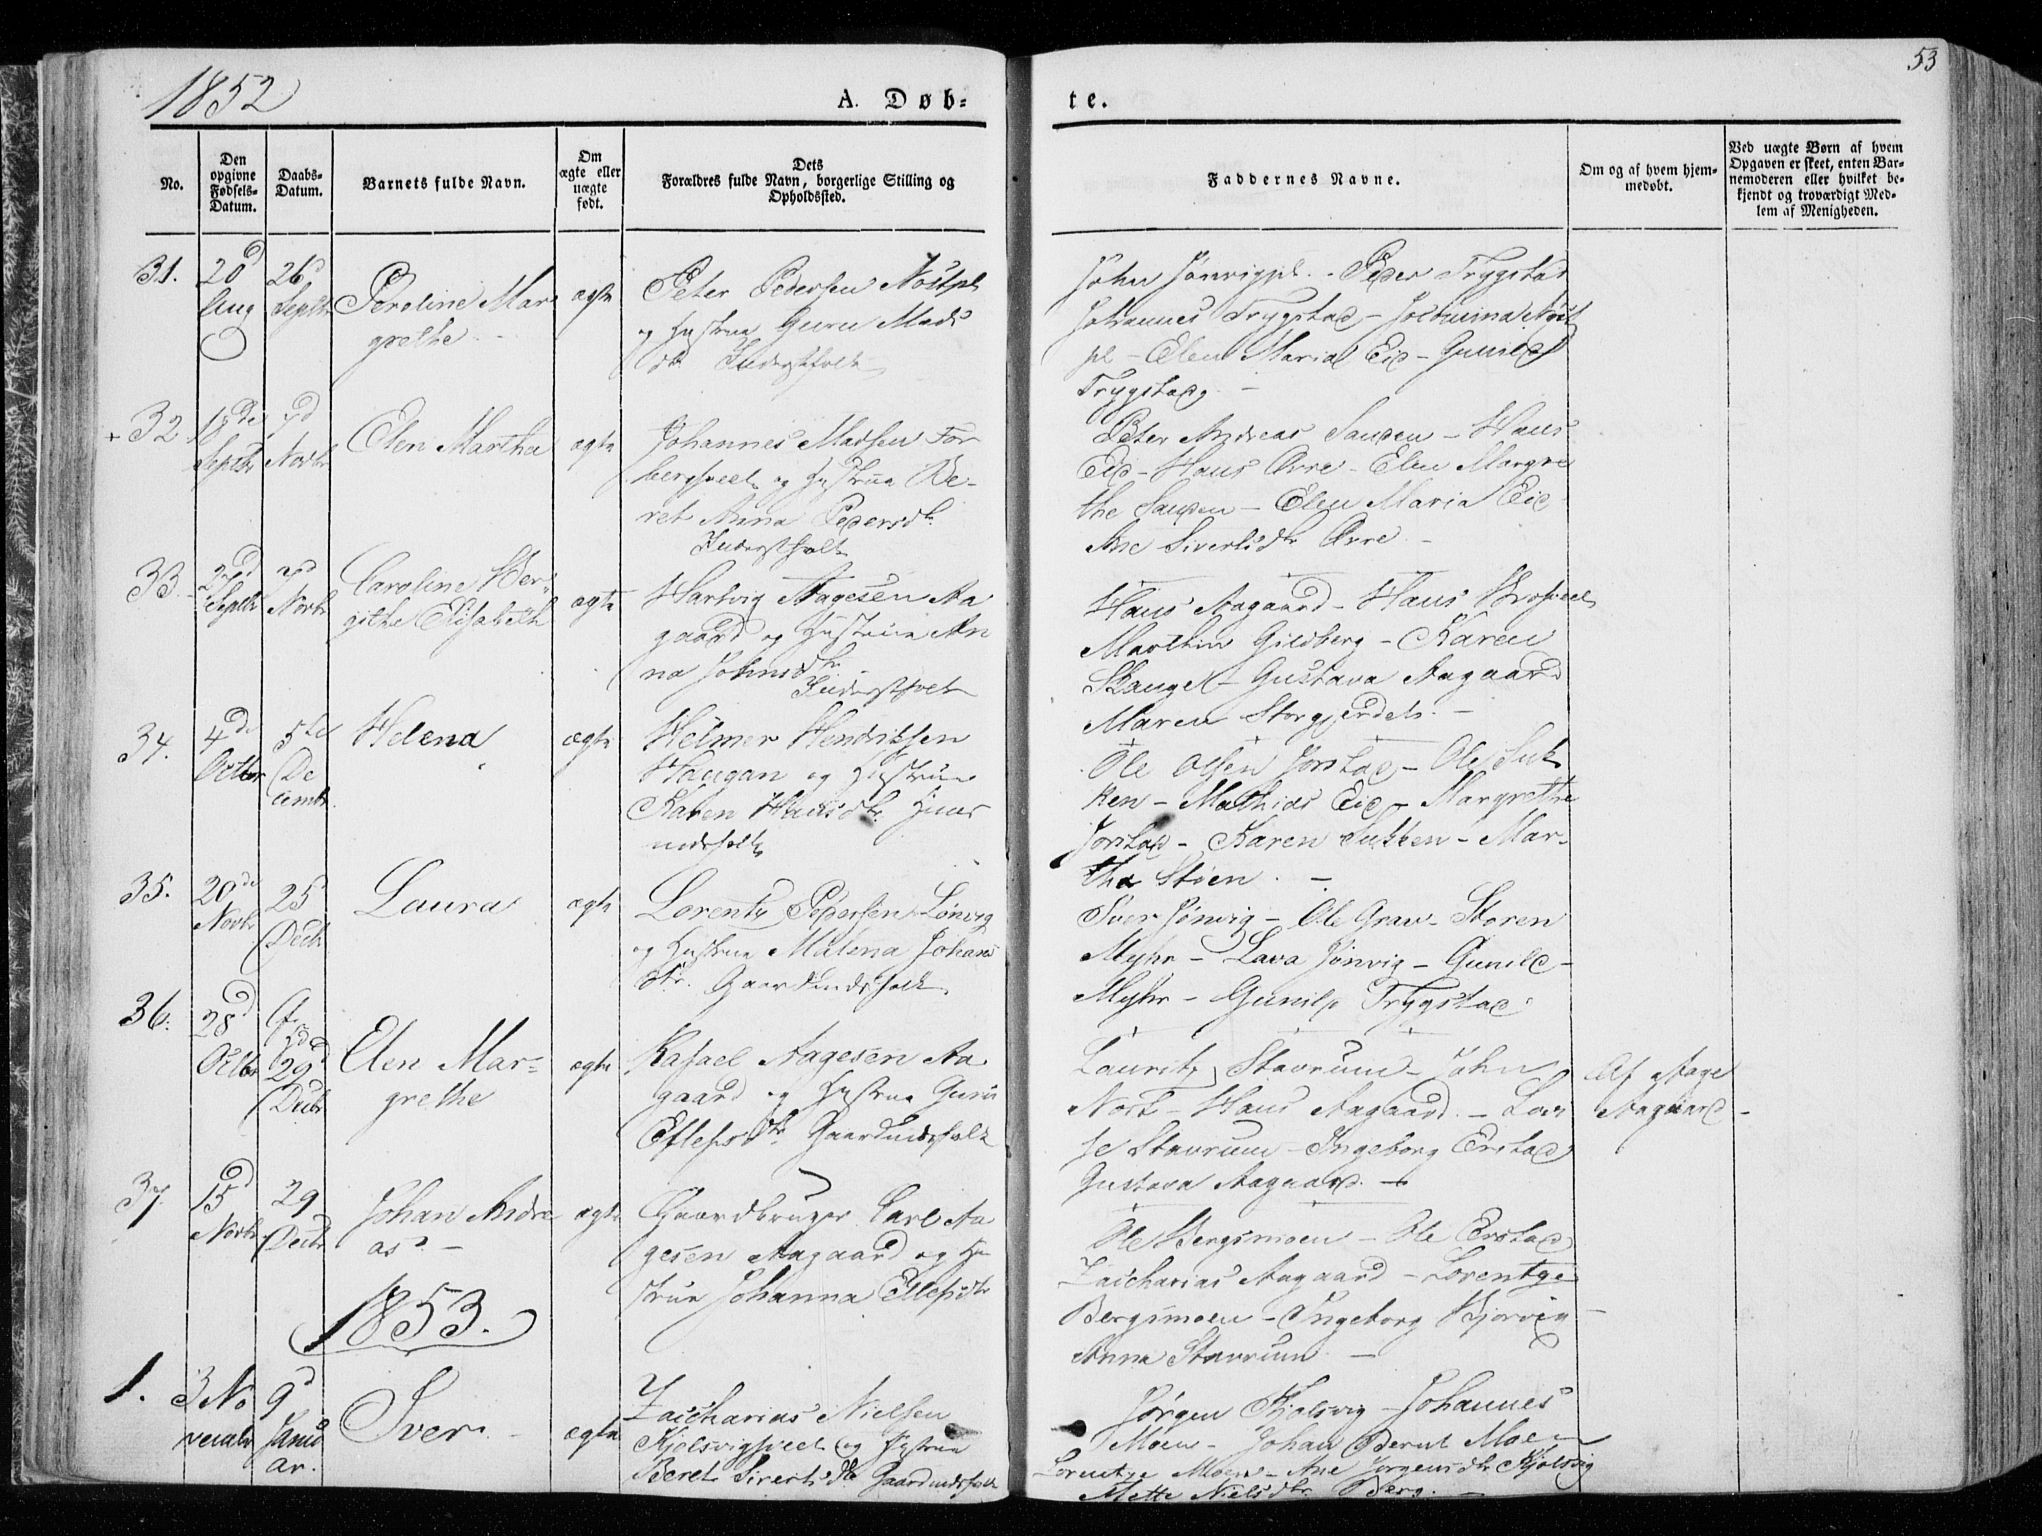 1852
A. Døb-
te.
53
No.
Den opgivne Fødsels-Datum.
Daabs-Datum.
Barnets fulde Navn.
Om ægte eller uægte født.
Dets Forældres fulde Navn, borgerlige Stilling og Opholdssted.
Faddernes Navne.
Om og af hvem hjem-
medøbt.
Ved uægte Børn af hvem
Opgaven er skeet, enten Bar-
nemoderen eller hvilket be-
kjendt og troværdigt Med-
lem af Menigheden.
31.
20d
Aug
26d
Septbr
Peroline Mar
grethe
ægte
Peter Pedersen Nöstpl
og Hustrue Guru Mads
dr Inderstfolk
John Jönvigpl. - Peder Trygstad
Johannes Trygstad -
pl - Elen Maria Eid - Gunild
Trygstad
+ 32
18de
Septbr
7d
Novbr
Elen Martha
ægte
Johannes Madsen For
bergsveet og Hustrue Be-
ret Anna Pedersdr
Inderstfolk
Peter Andreas Sanden - Hans
Eid - Hans Övre - Elen Margre
the Sanden - Elen Maria Eid
Ane Sivertsdr Övre -
33.
27d
Septbr
7d
Novbr
Caroline Ber
githe Elisabeth
ægte
Hartvig Aagesen Aa
gaard og Hustrue An
na Johnsdr
Inderstfolk
Hans Aagaard - Hans
Marthin Gildberg - Karen
Skauge - Gustava Aagaard
Maren
34.
4de
Octbr
5te
De
cembr
Helena
ægte
Helmer Hendriksen
Haugan og Hustrue
Karen Hansdr Huus
mandsfolk
Ole Olsen Jörstad - Ole Suk
ken - Mathias Eid - Margrethe
Jörstad - Karen Sukken - Mar-
tha Stöen. -
35.
20de
Novbr
25d
Decbr
Laura
ægte
Lorentz Pedersen Lönvig
og Hustrue Malena Johans
dr. Gaardmandsfolk
Iver Jönvig - Ole Grav - Storen
Myhr - Lava Jönvig - Gunild -
Myhr - Gunild Trygstad
36.
28d
Octbr
29d
Decbr
Elen Mar-
grethe
ægte
Rafael Aagesen Aa
gaard og Hustrue Guru
Ellefsdr Gaardmandsfolk
Lauritz Stavrum - John
Nost - Hans Aagaard - Lovi
se Stavrum - Ingeborg Erstad
Gustava Aagaard. -
Af Aage
Aagaard -
37.
15d
Novbr
29
Decbr
Johan Andre
as. -
ægte
Gaardbruger Carl Aa
gesen Aagaard og Hu
strue Johanna Ellefsdr
Ole Bergsmoen - Ole Erstad
Zacharias Aagaard - Lorentze
Bergsmoen - Ingeborg
Anna Stavrum -
1853.
1.
3 No
vembr
9d
Janu
ar.
Iver
ægte
Zacharias Nielsen
Kjølsvigsveet og Hustrue
Beret Sivertsdr Gaardmandsfolk
Jørgen Kjølsvig - Johannes
Moen - Johan Bernt Moen
Lorentze Moen - Ane Jørgensdr Kjølsvig
Mette Nielsdr Berg. -